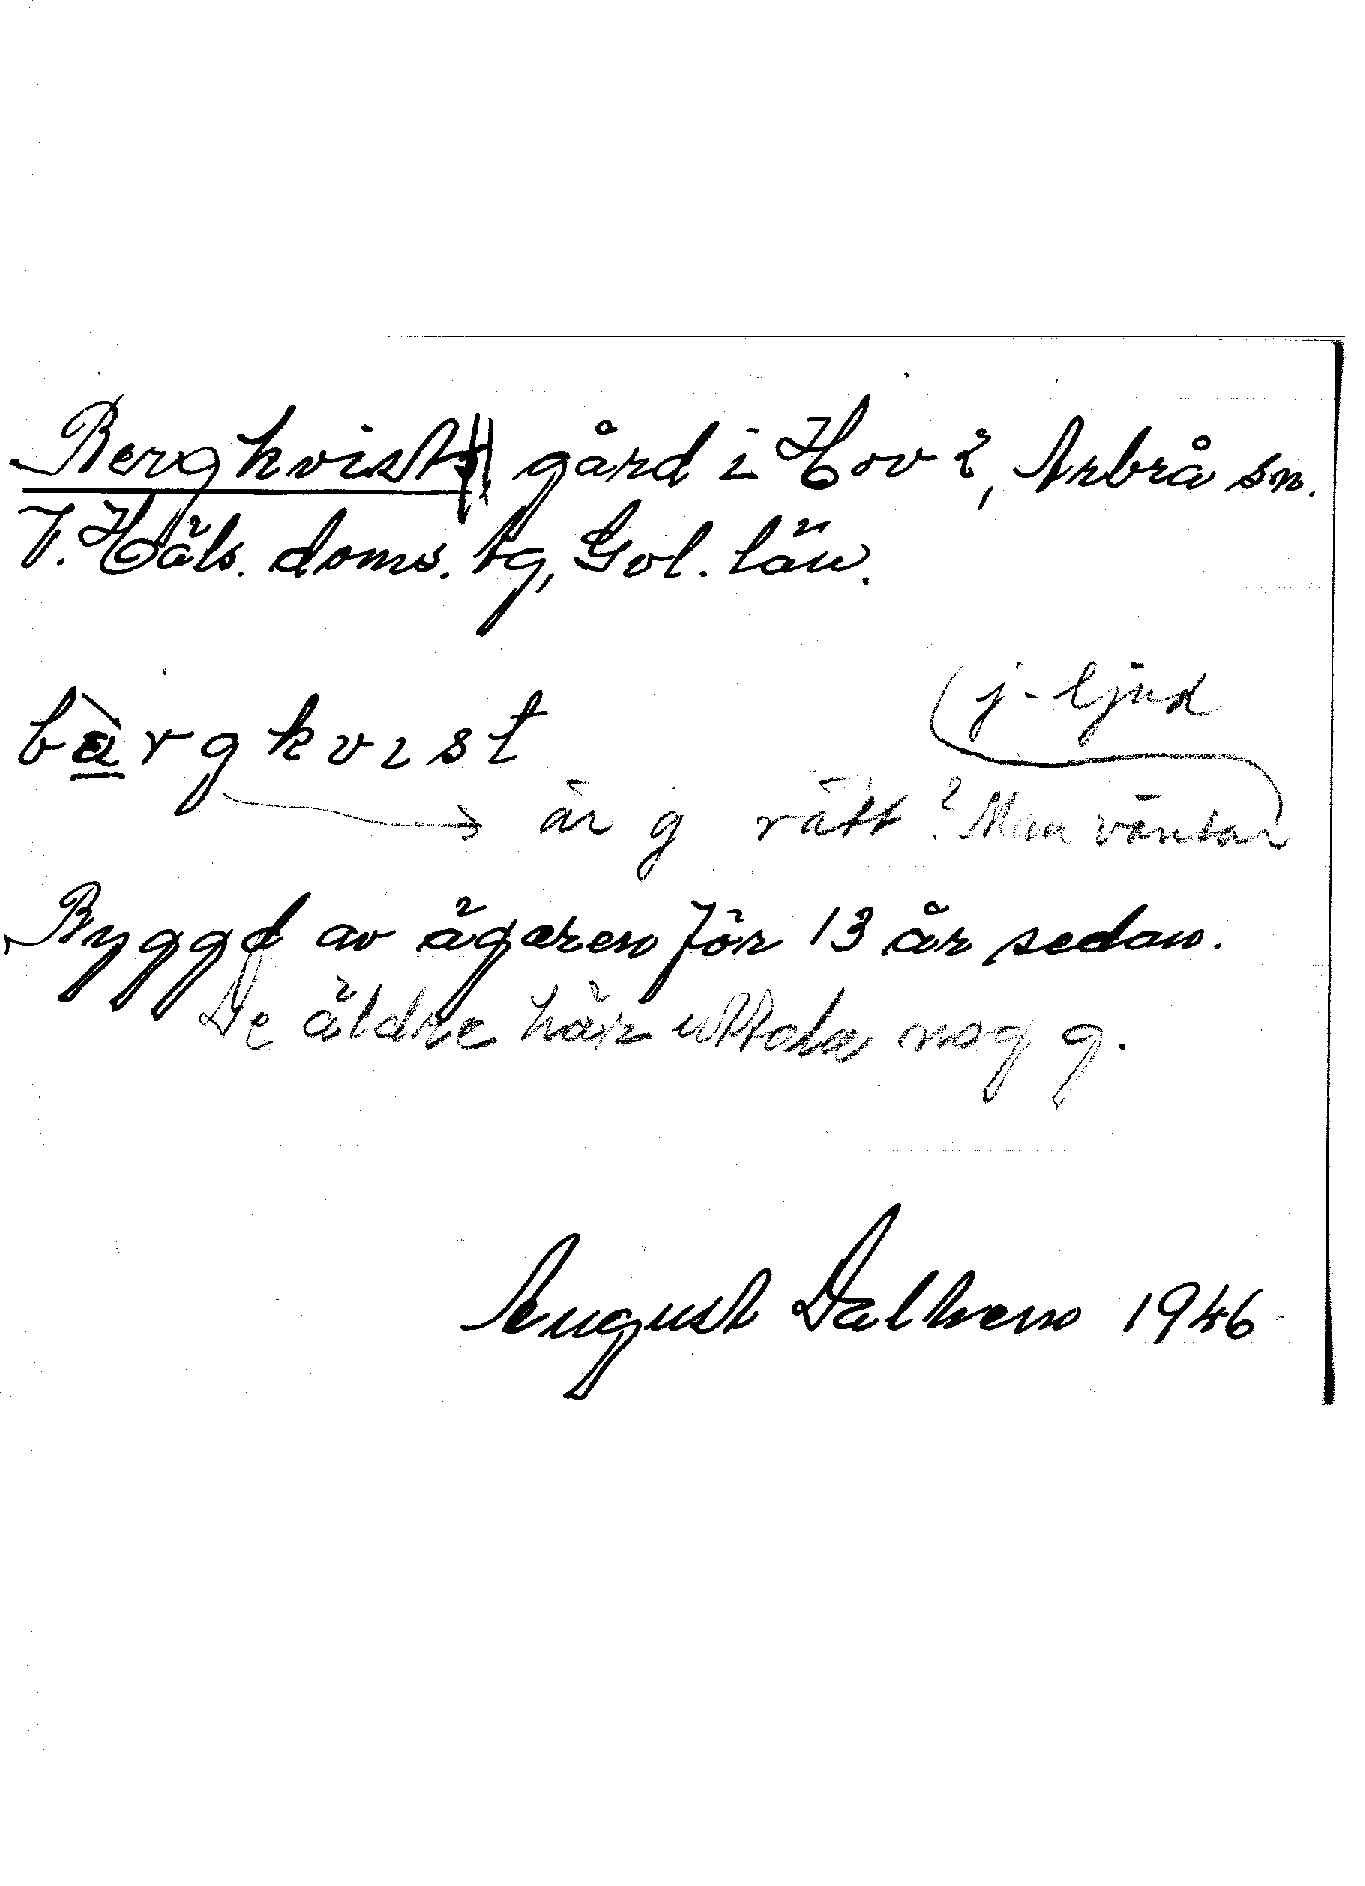 Bergkvist gård i Hov 2, Arbrå sn.
V. Häls. doms. bg, Gvl. län.
(j-ljud
bàrgkvıst
är g rätt? Man väntar
Byggd av ägaren för 13 år sedan.
De äldre här uttala nog g.
August Dalhem 1946